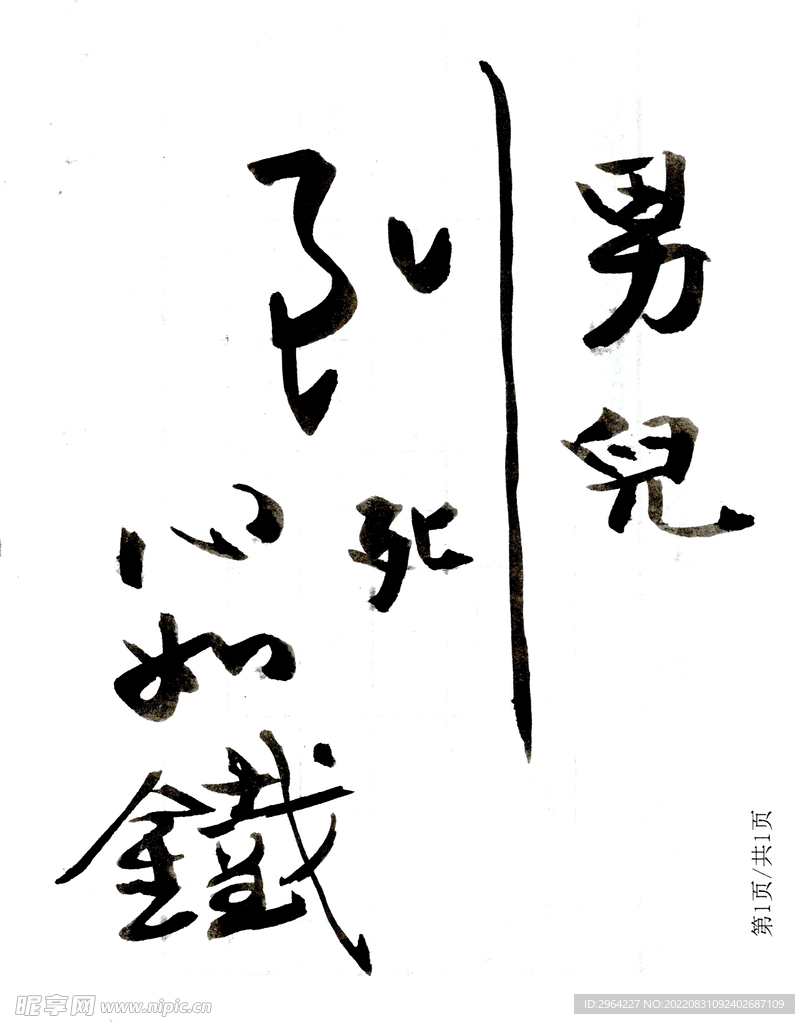 男兒
到死
心如鐵
第1页/共1页
昵享网 www.nipic.cn
ID:2964227 NO:20220831092402687109